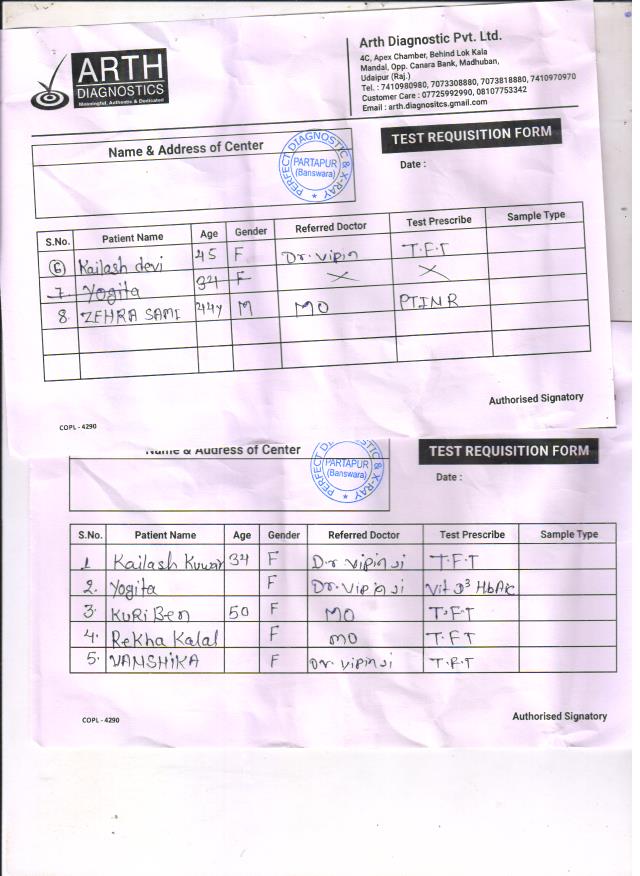 ARTH
DIAGNOSTICS
Meaningful, Authentic & Dedicated
Arth Diagnostic Pvt. Ltd.
4C, Apex Chamber, Behind Lok Kala
Mandal, Opp. Canara Bank, Madhuban,
Udaipur (Raj.)
Tel. : 7410980980, 7073308880, 7073818880, 7410970970
Customer Care : 07725992990, 08107753342
Email : arth.diagnositcs.gmail.com
Name & Address of Center
PERFECT DIAGNOSTIC & X-RAY
PARTAPUR
(Banswara)
TEST REQUISITION FORM
Date :
S.No. Patient Name Age Gender Referred Doctor Test Prescribe Sample Type
6 Kailash devi 45 F Dr. Vipin T.F.T
7. Yogita 34 F X X
8. ZEHRA SAMI 44y M MO PTINR
Authorised Signatory
COPL - 4290
Name & Address of Center
PARTAPUR
(Banswara)
& X-RAY
TEST REQUISITION FORM
Date :
S.No. Patient Name Age Gender Referred Doctor Test Prescribe Sample Type
1 Kailash Kuwar 34 F Dr Vipin Ji T.F.T
2. Yogita F Dr. Vipin Ji Vit D3 HbA1c
3. KURi Ben 50 F MO T.F.T
4. Rekha Kalal F MO T.F.T
5. VANSHIKA F Dr. Vipin Ji T.F.T
COPL - 4290
Authorised Signatory